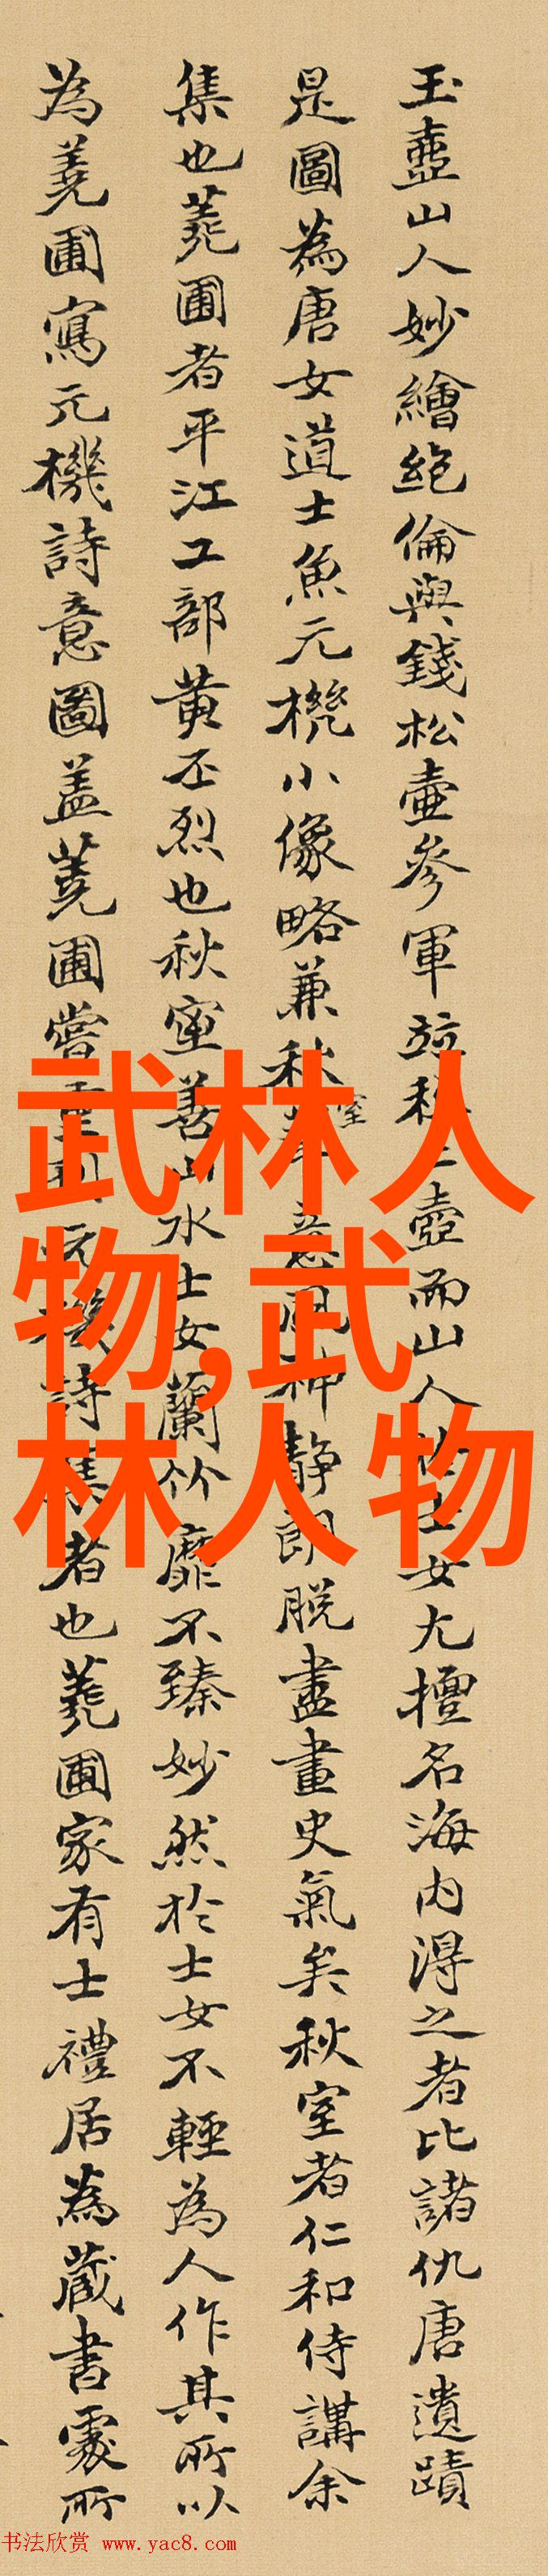 玉壺山人妙繪絶倫與錢松壺參軍竝稱二壺而山人於士女尤擅名海内得之者比諸仇唐遺蹟
是圖為唐女道士魚元機小像略兼秋室筆意風神静朗脱盡畫史氣矣秋室者仁和侍講余
集也蕘圃者平江工部黄丕烈也秋室善山水士女蘭竹靡不臻妙然於士女不輕為人作其所以
為蕘圃寫元機詩意圖盖蕘圃嘗重刊元機詩集者也蕘圃家有士禮居為藏書處所
武林人
物,武
林人物
书法欣赏 www.yac8.com